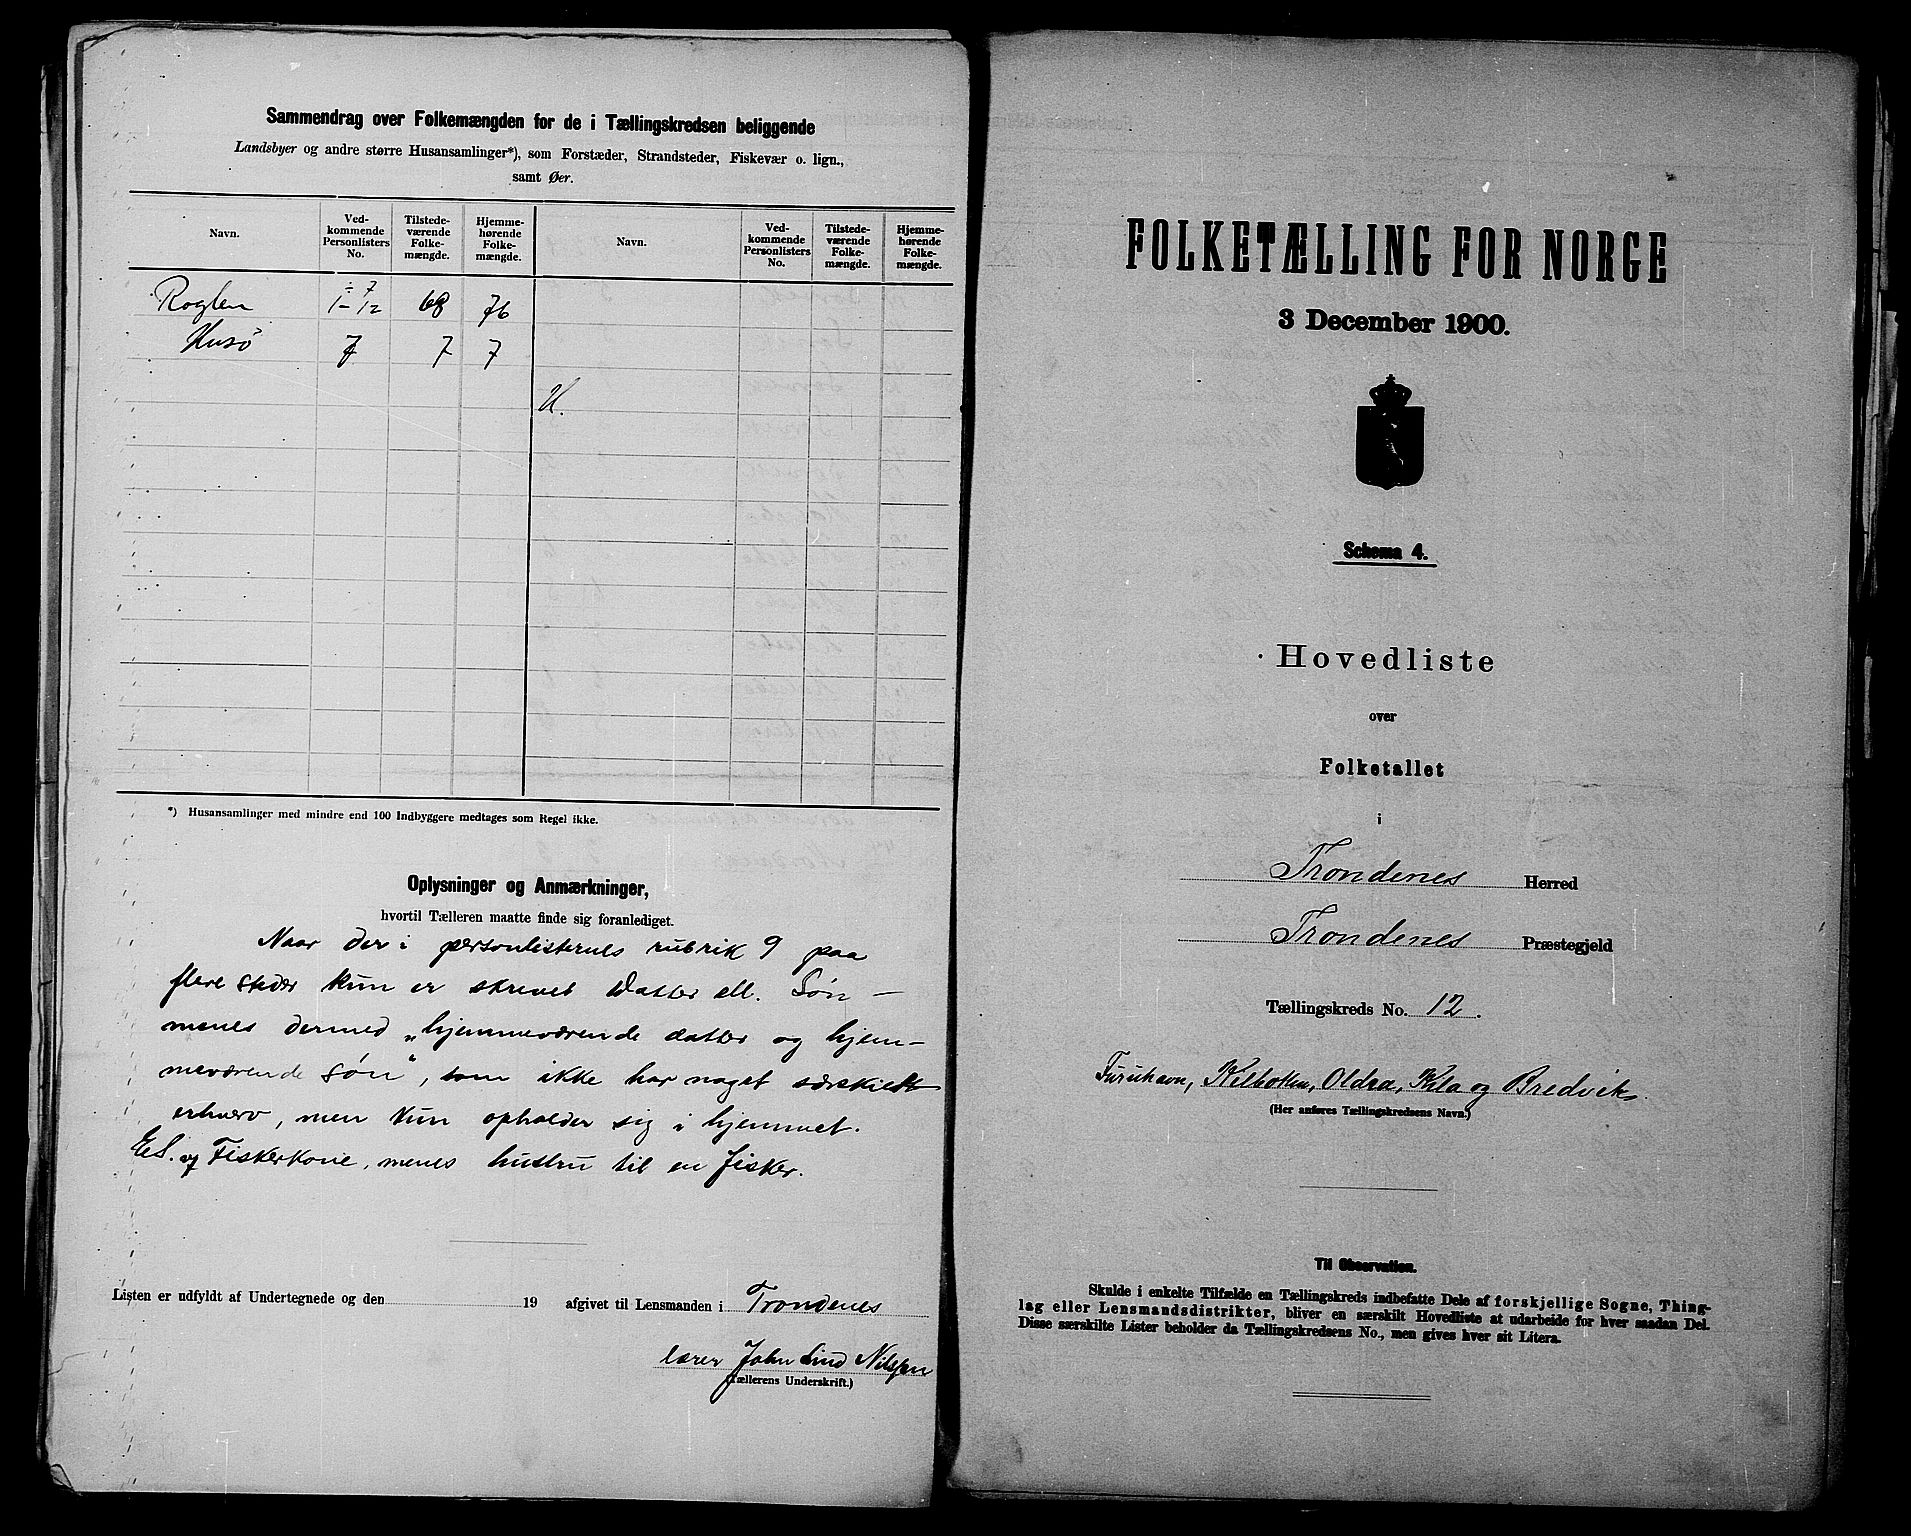 Sammendrag over Folkemængden for de i Tællingskredsen beliggende
Landsbyer og andre større Husansamlinger*), som Forstæder, Strandsteder, Fiskevær o. lign.,
samt Øer.
Navn. Ved-kommende Personlisters No. Tilstede-værende Folke-mængde. Hjemme-hørende Folke-mængde. Navn. Ved-kommende Personlisters No. Tilstede-værende Folke-mængde. Hjemme-hørende Folke-mængde.
÷ 7
Roglen 1-12 68 76
Husö 7 7 7
H.
*) Husansamlinger med mindre end 100 Indbyggere medtages som Regel ikke.
Oplysninger og Anmærkninger,
hvortil Tælleren maatte finde sig foranlediget.
Naar der i personlisternes rubrik 9 paa
flere steder kun er skrevet Datter ell. Søn -
menes dermed „hjemmeværende datter og hjem-
meværende søn", som ikke har noget særskilt
erhverv, men kun opholder sig i hjemmet.
El. og Fiskerkone, menes hustru til en fisker.
Listen er udfyldt af Undertegnede og den 19 afgivet til Lensmanden i Trondenes
lærer John Lind Nilssen
(Tællerens Underskrift.)
FOLKETÆLLING FOR NORGE
3 December 1900.
Schema 4.
Hovedliste
over
Folketallet
i
Trondenes Herred
Trondenes Præstegjeld
Tællingskreds No. 12.
Furuhavn, Kilbotten, Oldra, Kila og Bredvik.
(Her anføres Tællingskredsens Navn.)
Til Observation.
Skulde i enkelte Tilfælde en Tællingskreds indbefatte Dele af forskjellige Sogne, Thing-
lag eller Lensmandsdistrikter, bliver en særskilt Hovedliste at udarbeide for hver saadan Del.
Disse særskilte Lister beholder da Tællingskredsens No., men gives hver sit Litera.